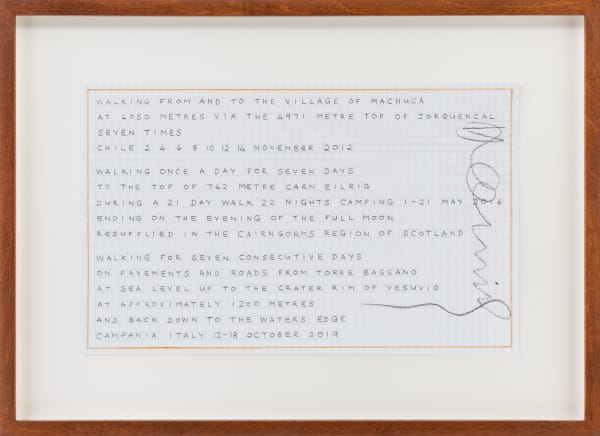 WALKING FROM AND TO THE VILLAGE OF MACHUCA
AT 4050 METRES VIA THE 4971 METRE TOP OF JORQUENCAL
SEVEN TIMES
CHILE 2 4 6 8 10 12 14 NOVEMBER 2012
WALKING ONCE A DAY FOR SEVEN DAYS
TO THE TOP OF 742 METRE CARN EILRIG
DURING A 21 DAY WALK 22 NIGHTS CAMPING 1-21 MAY 2016
ENDING ON THE EVENING OF THE FULL MOON
RESUPPLIED IN THE CAIRNGORMS REGION OF SCOTLAND
WALKING FOR SEVEN CONSECUTIVE DAYS
ON PAVEMENTS AND ROADS FROM TORRE BASSANO
AT SEA LEVEL UP TO THE CRATER RIM OF VESUVIO
AT APPROXIMATELY 1200 METRES
AND BACK DOWN TO THE WATERS EDGE
CAMPANIA ITALY 12-18 OCTOBER 2019